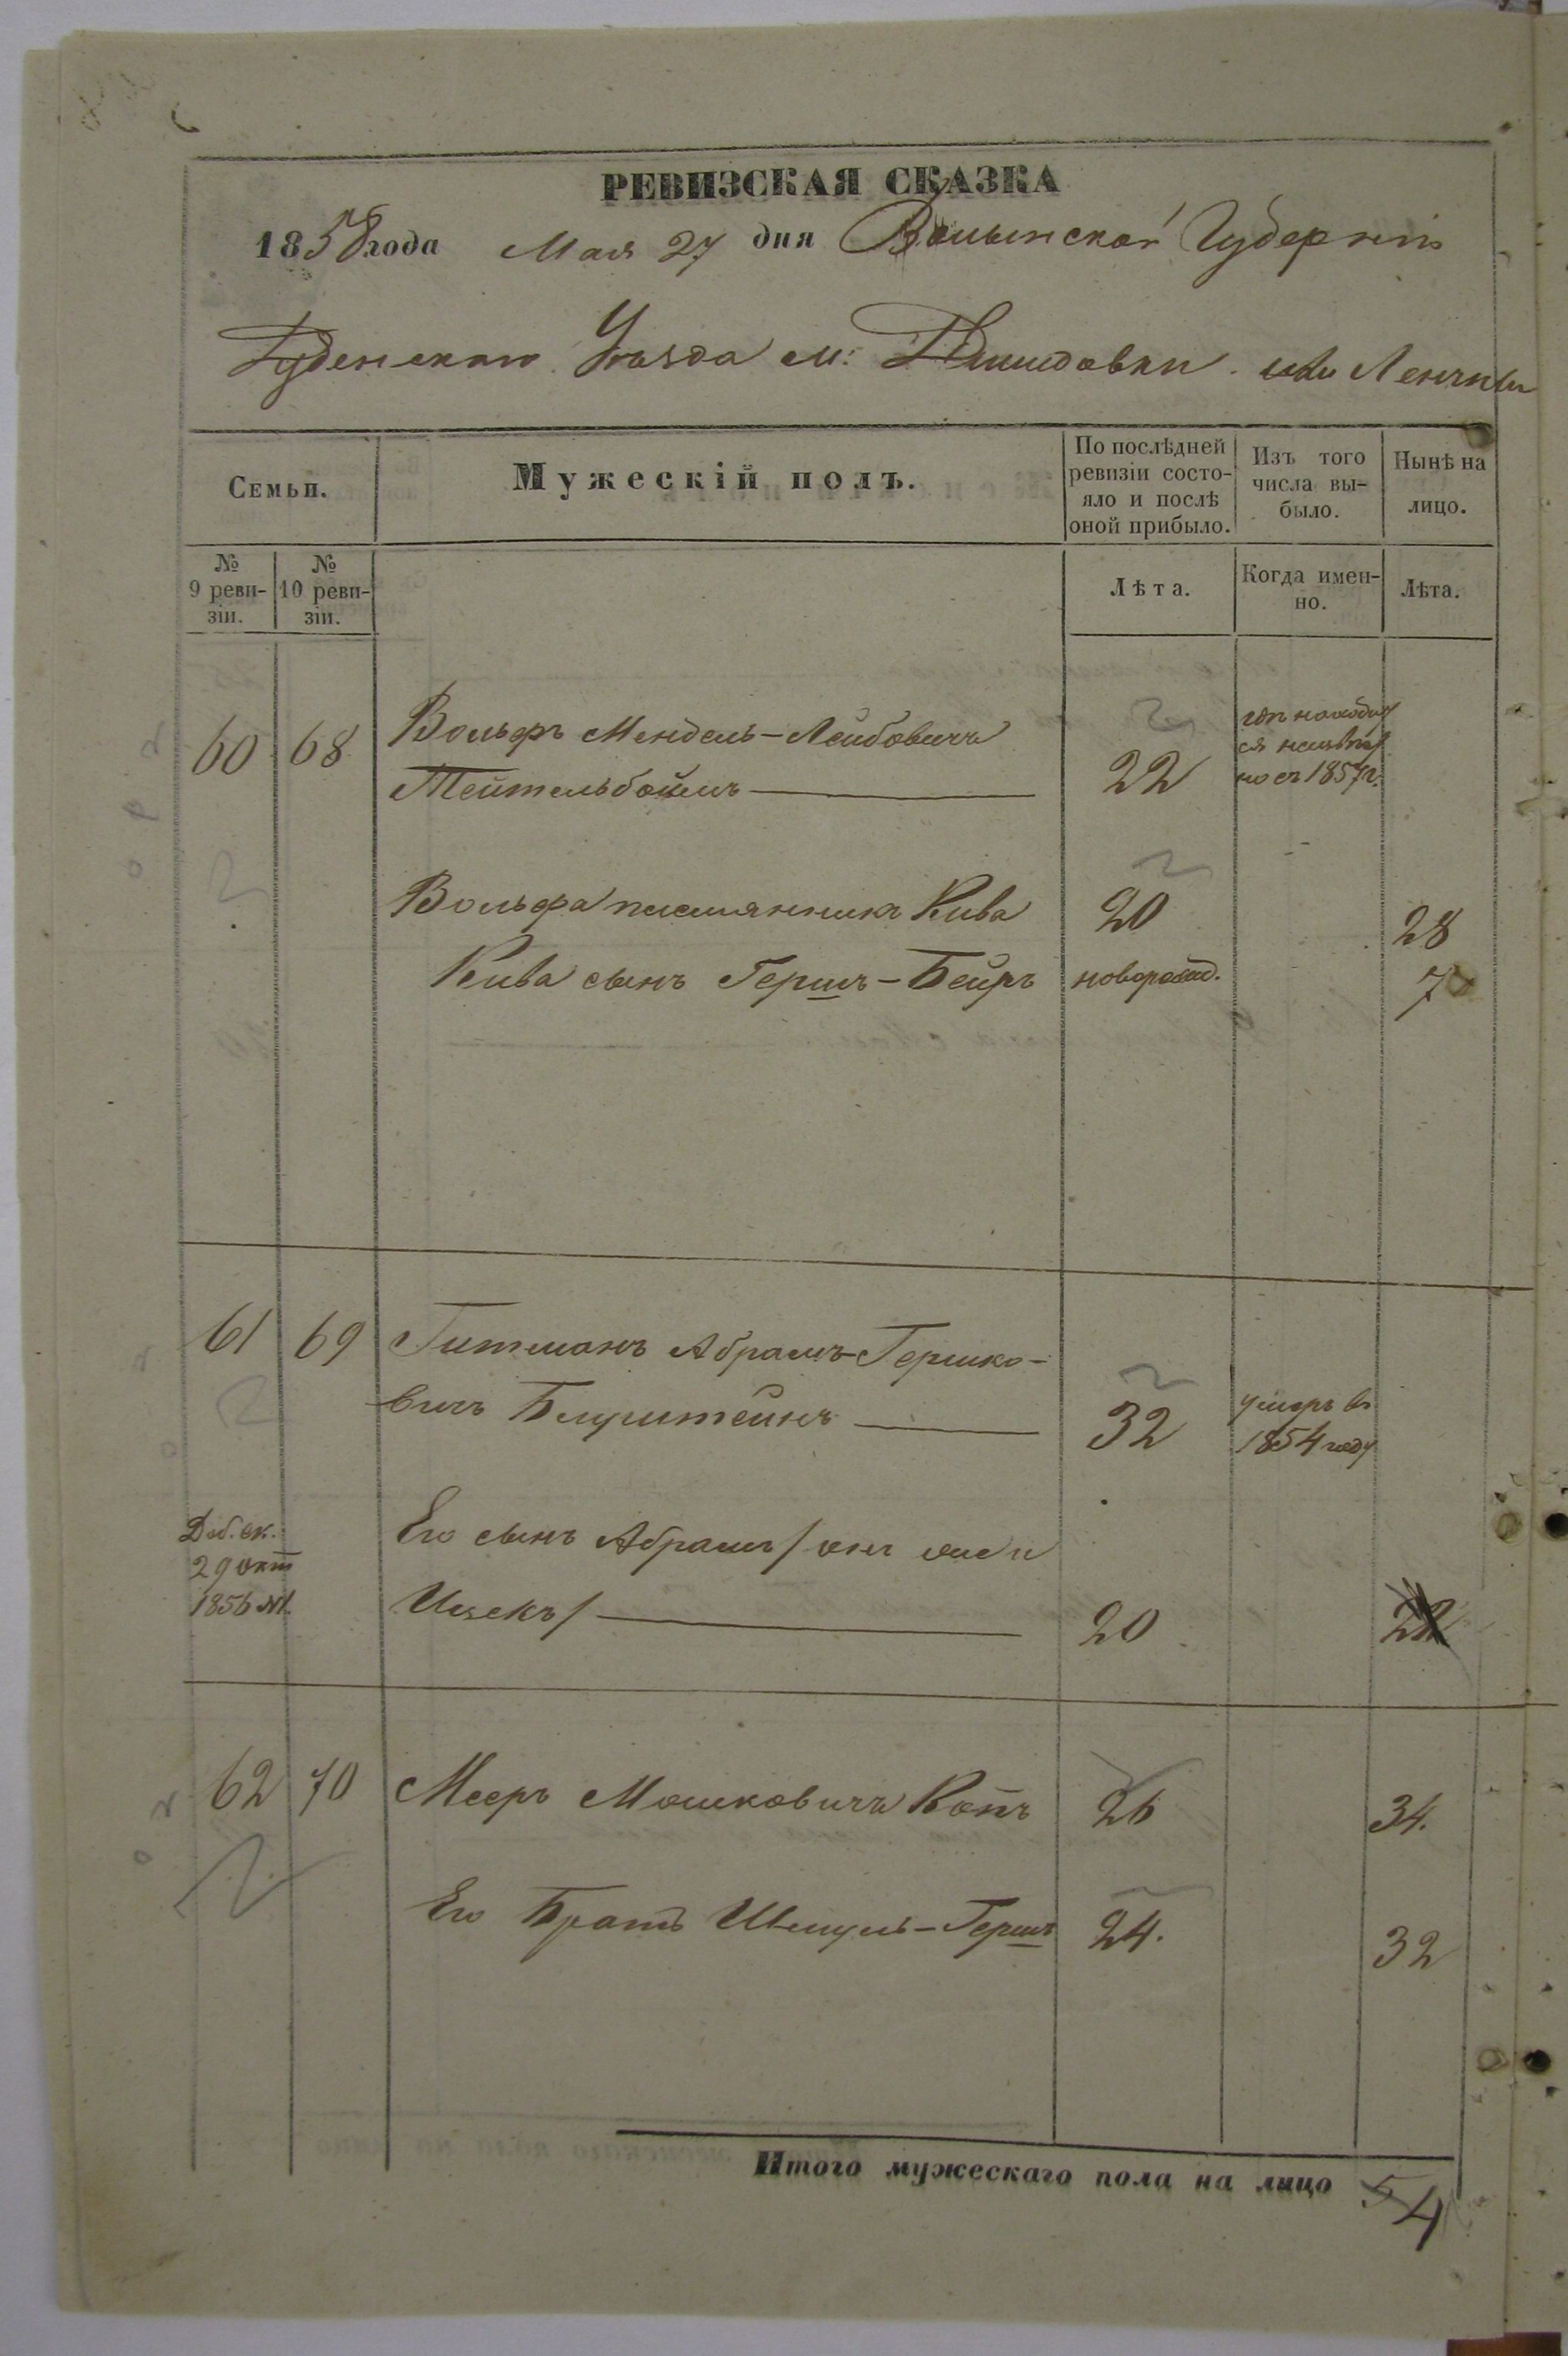 РЕВИЗСКАЯ СКАЗКА
1858 года Мая 27 дня Волынской Губерніи
Дубенскаго Уѣзда м: Демидовки или Ленчны
Семьи.
Мужескій полъ.
По послѣдней ревизіи состо-
яло и послѣ
оной прибыло.
Изъ того
числа вы-
было.
Нынѣ на
лицо.
№
9 реви-
зіи.
№
10 реви-
зіи.
Лѣта.
Когда имен-
но.
Лѣта.
60 68 Вольфъ Мендель-Лейбовичъ
Тейтельбоймъ 22
гдѣ находит
ся неизвѣст
но съ 1857 г.
Вольфа племянникъ Кива 20 28
Кива сынъ Гершъ-Бейръ новорожд. 7
61 69 Гитманъ Абрамъ-Гершко-
вичъ Блуштейнъ 32
умеръ въ
1854 году
Доб. ск.
29 окт
1856 №1.
Его сынъ Абрамъ / онъ же и
Ицекъ / 20 28
62 70 Мееръ Мошковичъ Котъ 26 34.
Его Братъ Шмуль-Гершъ 24. 32
Итого мужескаго пола на лицо 5 4